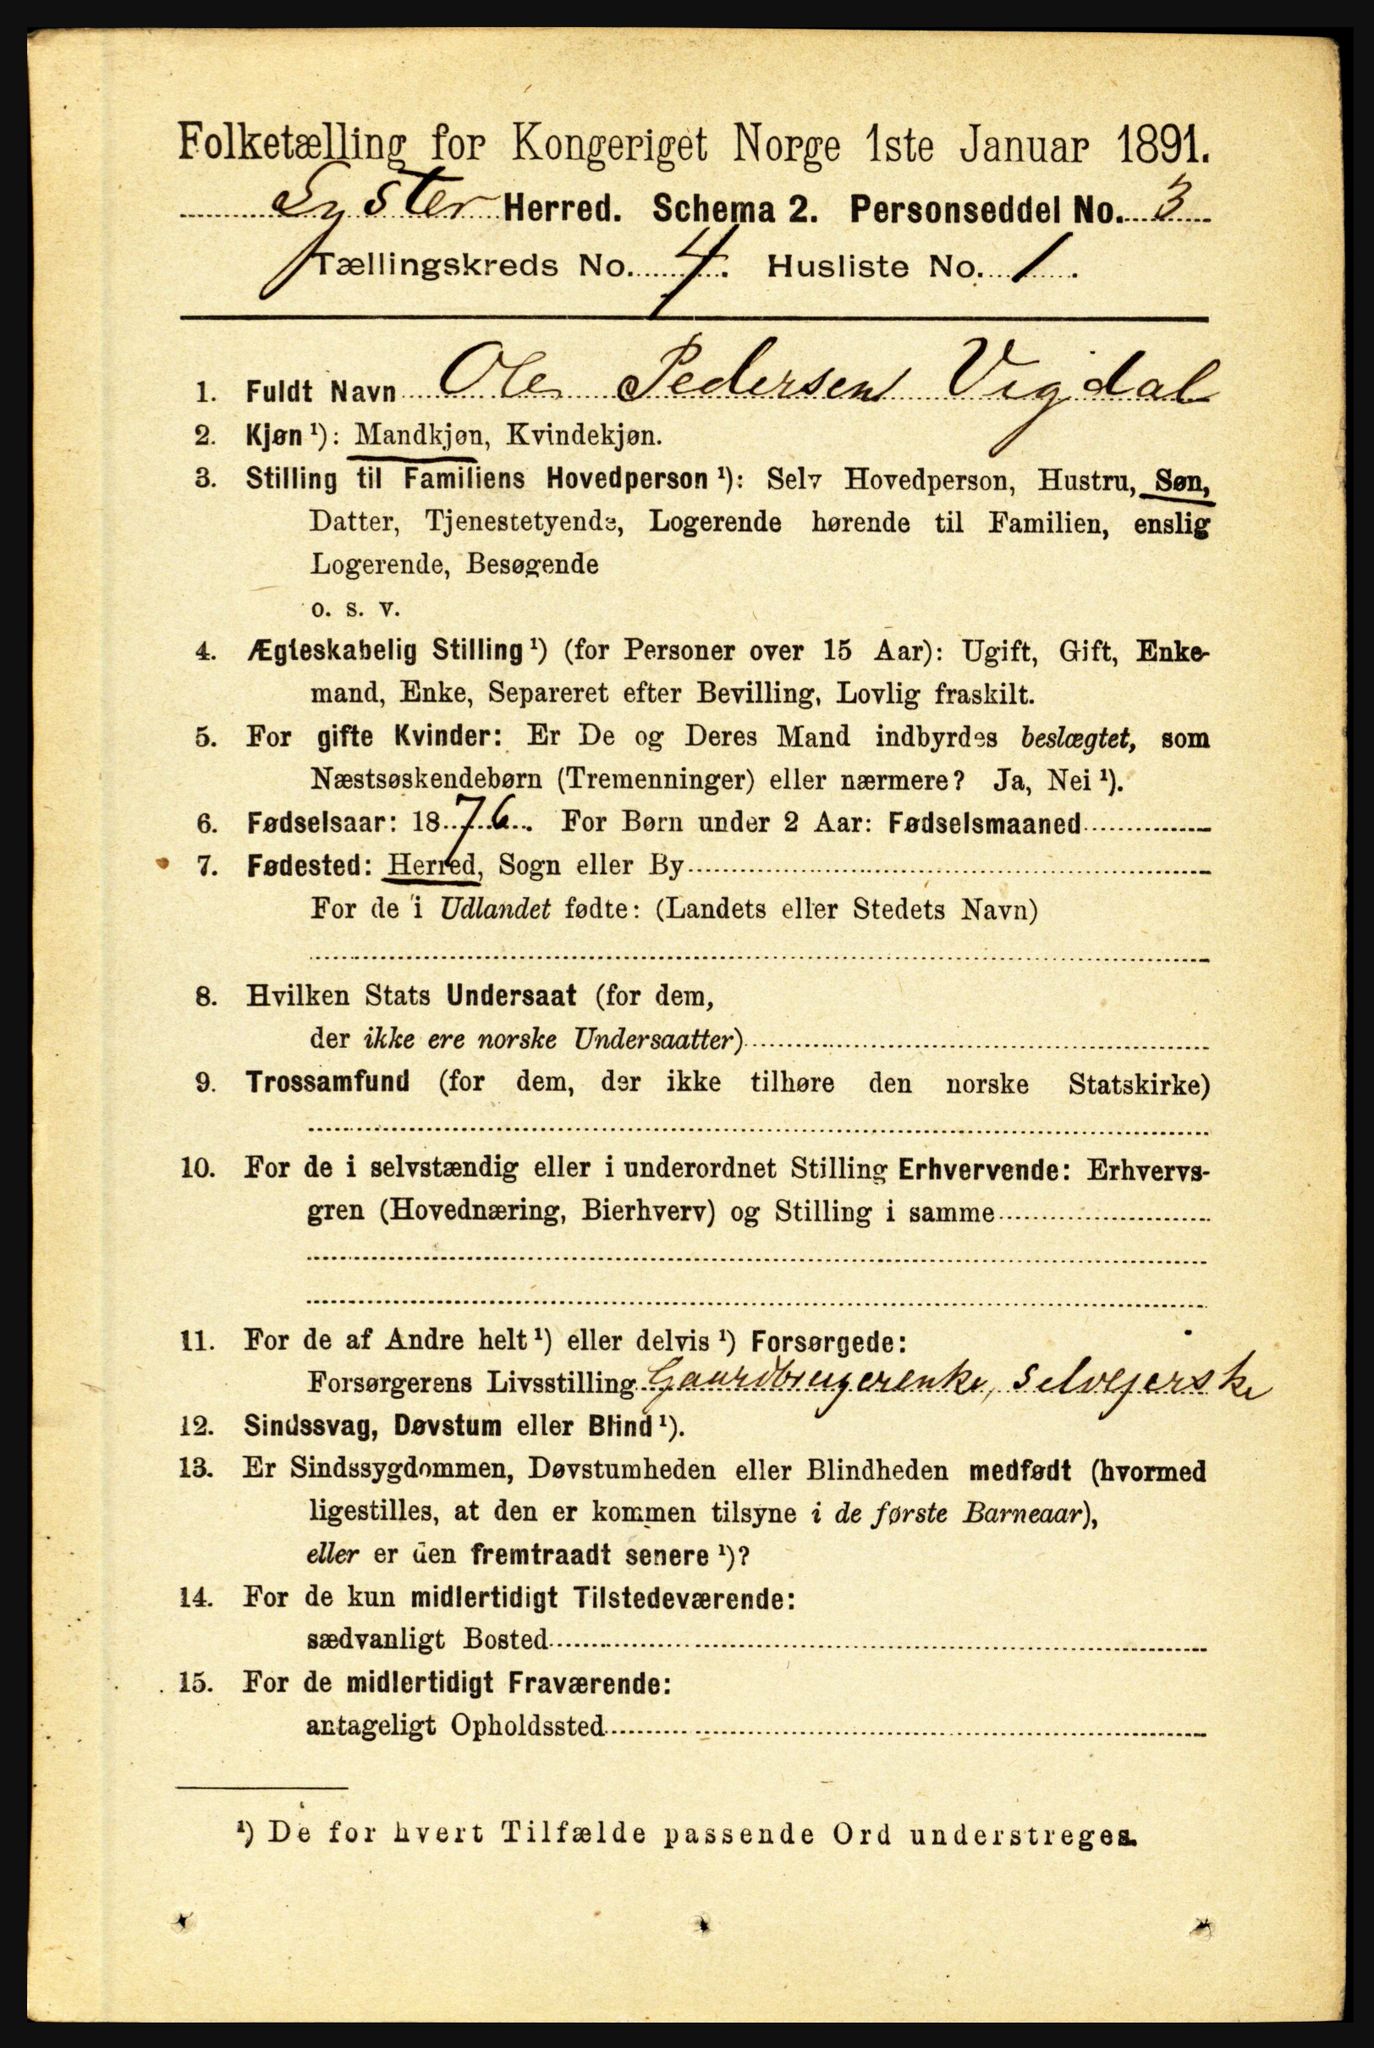 Folketælling for Kongeriget Norge 1ste Januar 1891.
Lyster Herred. Schema 2. Personseddel No. 3
Tællingskreds No. 4. Husliste No. 1.
1. Fuldt Navn Ole Pedersen Vigdal
2. Kjøn ¹): Mandkjøn, Kvindekjøn.
3. Stilling til Familiens Hovedperson ¹): Selv Hovedperson, Hustru, Søn,
Datter, Tjenestetyende, Logerende hørende til Familien, enslig
Logerende, Besøgende
o. s. v.
4. Ægteskabelig Stilling ¹) (for Personer over 15 Aar): Ugift, Gift, Enke-
mand, Enke, Separeret efter Bevilling, Lovlig fraskilt.
5. For gifte Kvinder: Er De og Deres Mand indbyrdes beslægtet, som
Næstsøskendebørn (Tremenninger) eller nærmere? Ja, Nei ¹).
6. Fødselsaar: 1876. For Børn under 2 Aar: Fødselsmaaned
7. Fødested: Herred, Sogn eller By
For de i Udlandet fødte: (Landets eller Stedets Navn)
8. Hvilken Stats Undersaat (for dem,
der ikke ere norske Undersaatter)
9. Trossamfund (for dem, der ikke tilhøre den norske Statskirke)
10. For de i selvstændig eller i underordnet Stilling Erhvervende: Erhvervs-
gren (Hovednæring, Bierhverv) og Stilling i samme
11. For de af Andre helt ¹) eller delvis ¹) Forsørgede:
Forsørgerens Livsstilling Gaardbrugerenke, selvejerske
12. Sindssvag, Døvstum eller Blind ¹).
13. Er Sindssygdommen, Døvstumheden eller Blindheden medfødt (hvormed
ligestilles, at den er kommen tilsyne i de første Barneaar),
eller er den fremtraadt senere ¹)?
14. For de kun midlertidigt Tilstedeværende:
sædvanligt Bosted
15. For de midlertidigt Fraværende:
antageligt Opholdssted
¹) De for hvert Tilfælde passende Ord understreges.